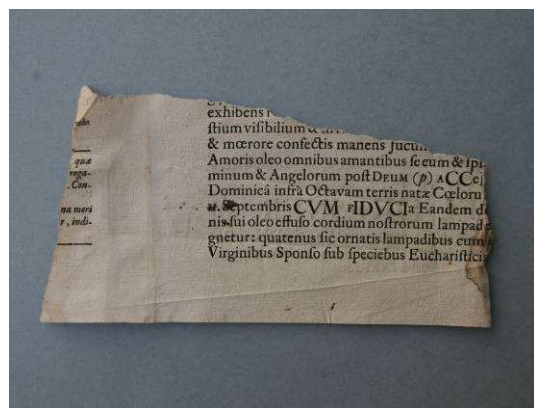 quæ
rega-
. Con-
na meri
r, indi-
exhibens
ſtium viſibilium &
& mœrore confectis manens Jucun
Amoris oleo omnibus amantibus ſe eum & ſpi
minum & Angelorum poſt DEUM (p) ACCe
Dominicâ infrà Octavam terris natæ Cœloru
Septembris CVM FIDVCIa Eandem de
nis ſui oleo effuſo cordium noſtrorum lampade
gnetur: quatenus ſic ornatis lampadibus cum
Virginibus Sponſo ſub ſpeciebus Euchariſticis